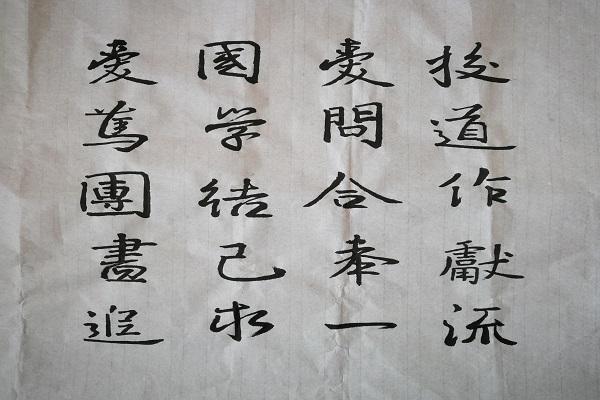 愛國愛校
篤学問道
團結合作
盡己奉獻
追求一流